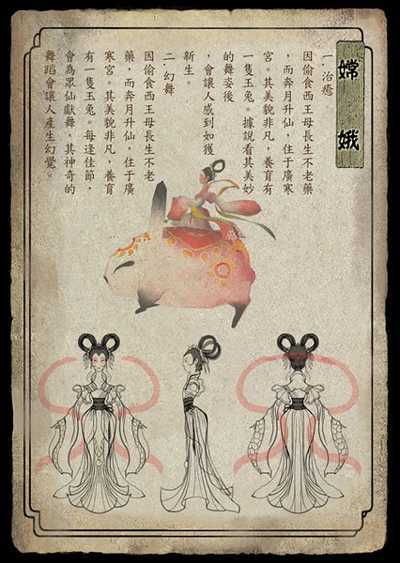 嫦娥
一.治癒
因偷食西王母長生不老藥
,而奔月升仙,住于廣寒
宮。其美貌非凡,養育有
一隻玉兔。據說看其美妙
的舞姿後
,會讓人感到如獲
新生。
二.幻舞
因偷食西王母長生不老
藥,而奔月升仙,住于廣
寒宮。其美貌非凡,養育
有一隻玉兔。每逢佳節,
會為眾仙獻舞。其神奇的
舞蹈會讓人產生幻覺。